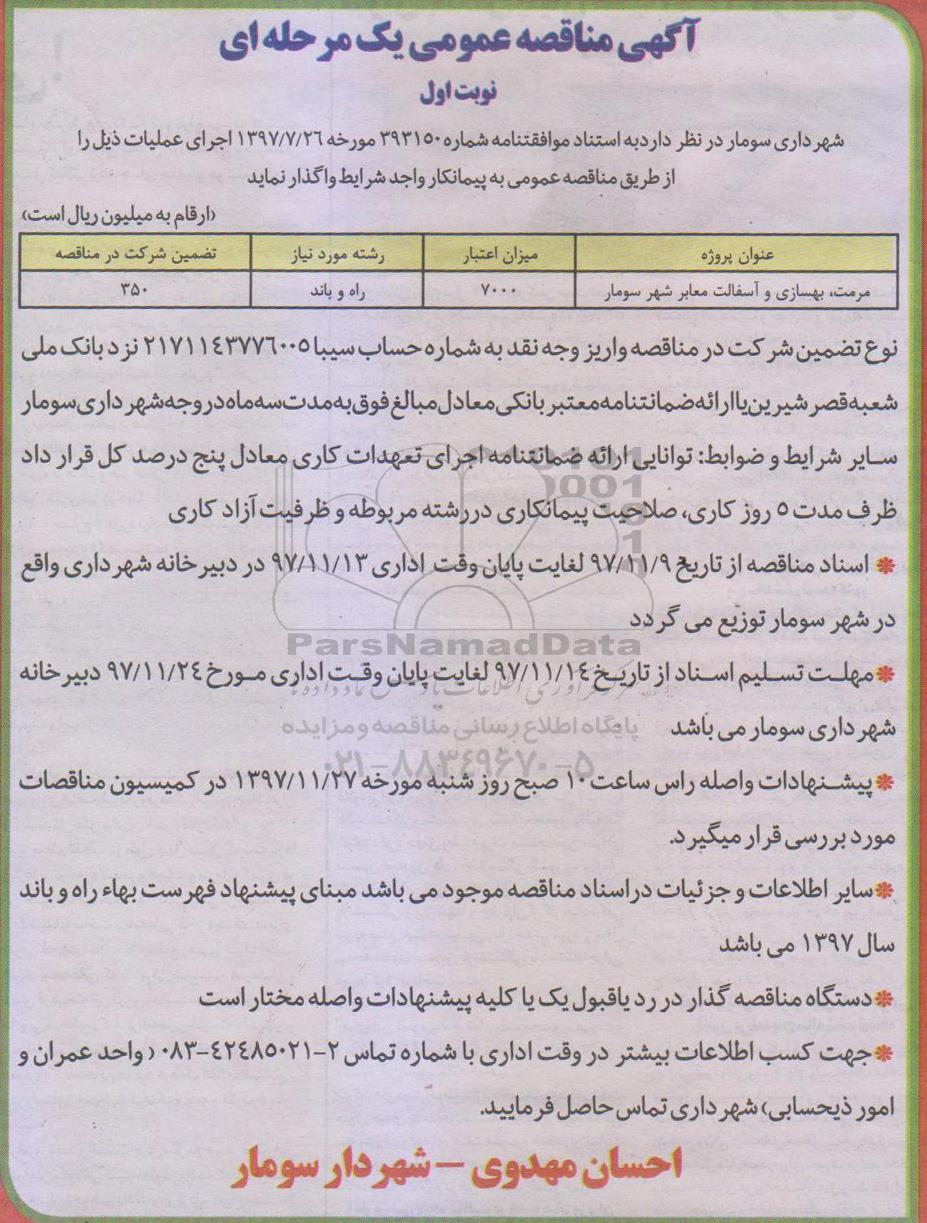 آگهی مناقصه عمومی یک مرحله ای
نوبت اول
شهرداری سومار در نظر دارد به استناد موافقتنامه شماره ۳۹۳۱۵۰ مورخه ۱۳۹۷/۷/۲۶ اجرای عملیات ذیل را
از طریق مناقصه عمومی به پیمانکار واجد شرایط واگذار نماید
(ارقام به میلیون ریال است)
عنوان پروژه میزان اعتبار رشته مورد نیاز تضمین شرکت در مناقصه
مرمت، بهسازی و آسفالت معابر شهر سومار ۷۰۰۰ راه و باند ۳۵۰
نوع تضمین شرکت در مناقصه واریز وجه نقد به شماره حساب سیبا ۲۱۷۱۱۴۳۷۷۶۰۰۵ نزد بانک ملی
شعبه قصر شیرین یا ارائه ضمانتنامه معتبر بانکی معادل مبالغ فوق به مدت سه ماه در وجه شهرداری سومار
سایر شرایط و ضوابط: توانایی ارائه ضمانتنامه اجرای تعهدات کاری معادل پنج درصد کل قرار داد
ظرف مدت ۵ روز کاری، صلاحیت پیمانکاری در رشته مربوطه و ظرفیت آزاد کاری
* اسناد مناقصه از تاریخ ۹۷/۱۱/۹ لغایت پایان وقت اداری ۹۷/۱۱/۱۳ در دبیرخانه شهرداری واقع
در شهر سومار توزیع می گردد
ParsNamadData
* مهلت تسلیم اسناد از تاریخ ۹۷/۱۱/۱۴ لغایت پایان وقت اداری مورخ ۹۷/۱۱/۲۴ دبیرخانه
شهرداری سومار می باشد
پایگاه اطلاع رسانی مناقصه و مزایده
۰۲۱-۸۸۳۴۹۶۷۰-۵
* پیشنهادات واصله راس ساعت ۱۰ صبح روز شنبه مورخه ۱۳۹۷/۱۱/۲۷ در کمیسیون مناقصات
مورد بررسی قرار میگیرد.
* سایر اطلاعات و جزئیات در اسناد مناقصه موجود می باشد مبنای پیشنهاد فهرست بهاء راه و باند
سال ۱۳۹۷ می باشد
* دستگاه مناقصه گذار در رد یا قبول یک یا کلیه پیشنهادات واصله مختار است
* جهت کسب اطلاعات بیشتر در وقت اداری با شماره تماس ۲-۴۲۴۸۵۰۲۱-۰۸۳ (واحد عمران و
امور ذیحسابی) شهرداری تماس حاصل فرمایید.
احسان مهدوی - شهردار سومار